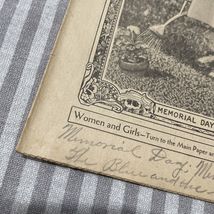 MEMORIAL DAY
Women and Girls—Turn to the Main Paper
Memorial Day:
The Blue and the